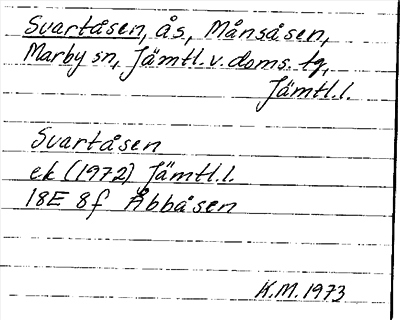 Svartåsen, ås, Månsåsen,
Marby sn, Jämtl. v. doms. tg,
Jämtl. l.
Svartåsen
ek (1972) Jämtl. l.
18E 8f Åbbåsen
K.M. 1973